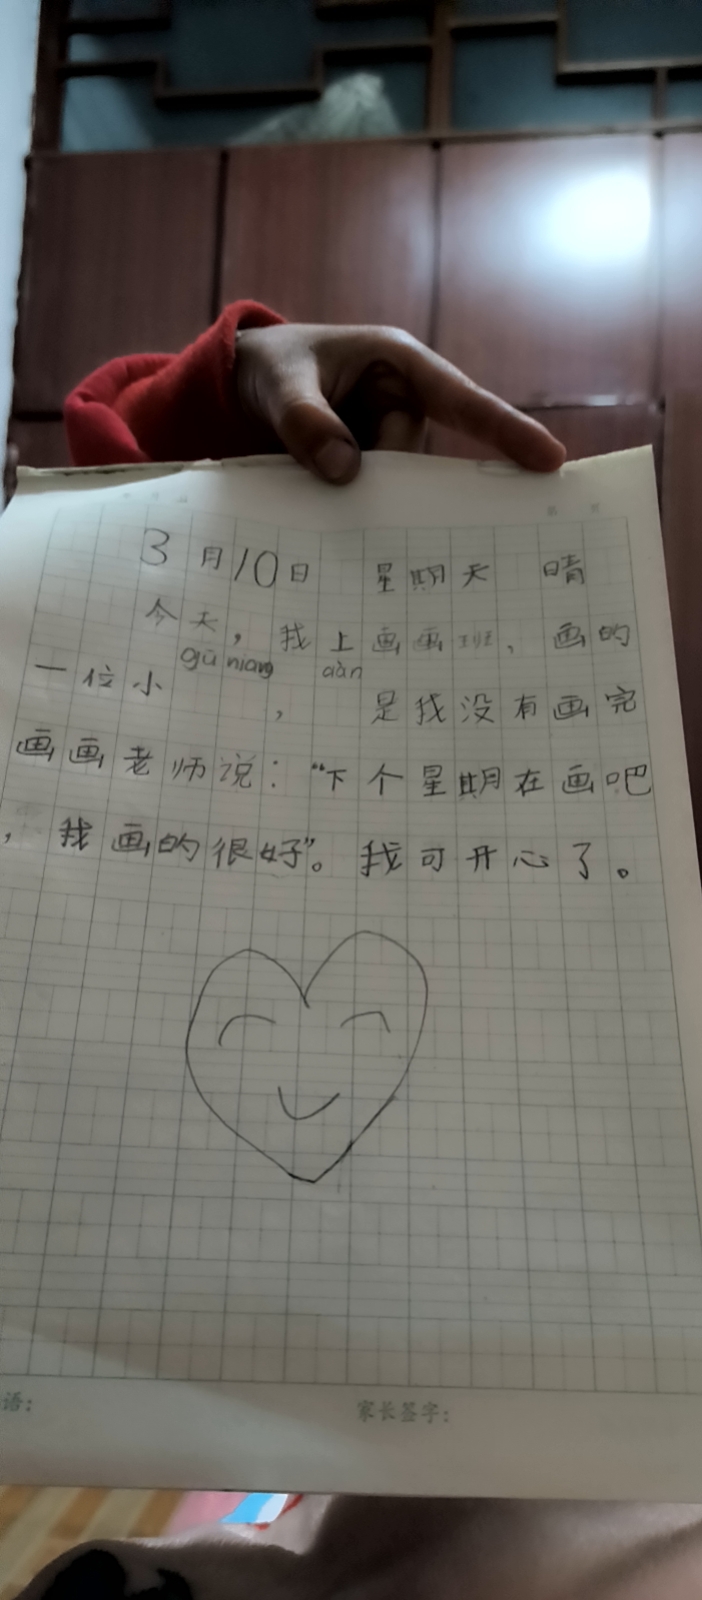 3月10日 星期天 晴
今天，我上画画班，画的
gū niang dàn
一位小 ， 是我没有画完
画画老师说：“下个星期在画吧
，我画的很好”。我可开心了。
语：
家长签字：